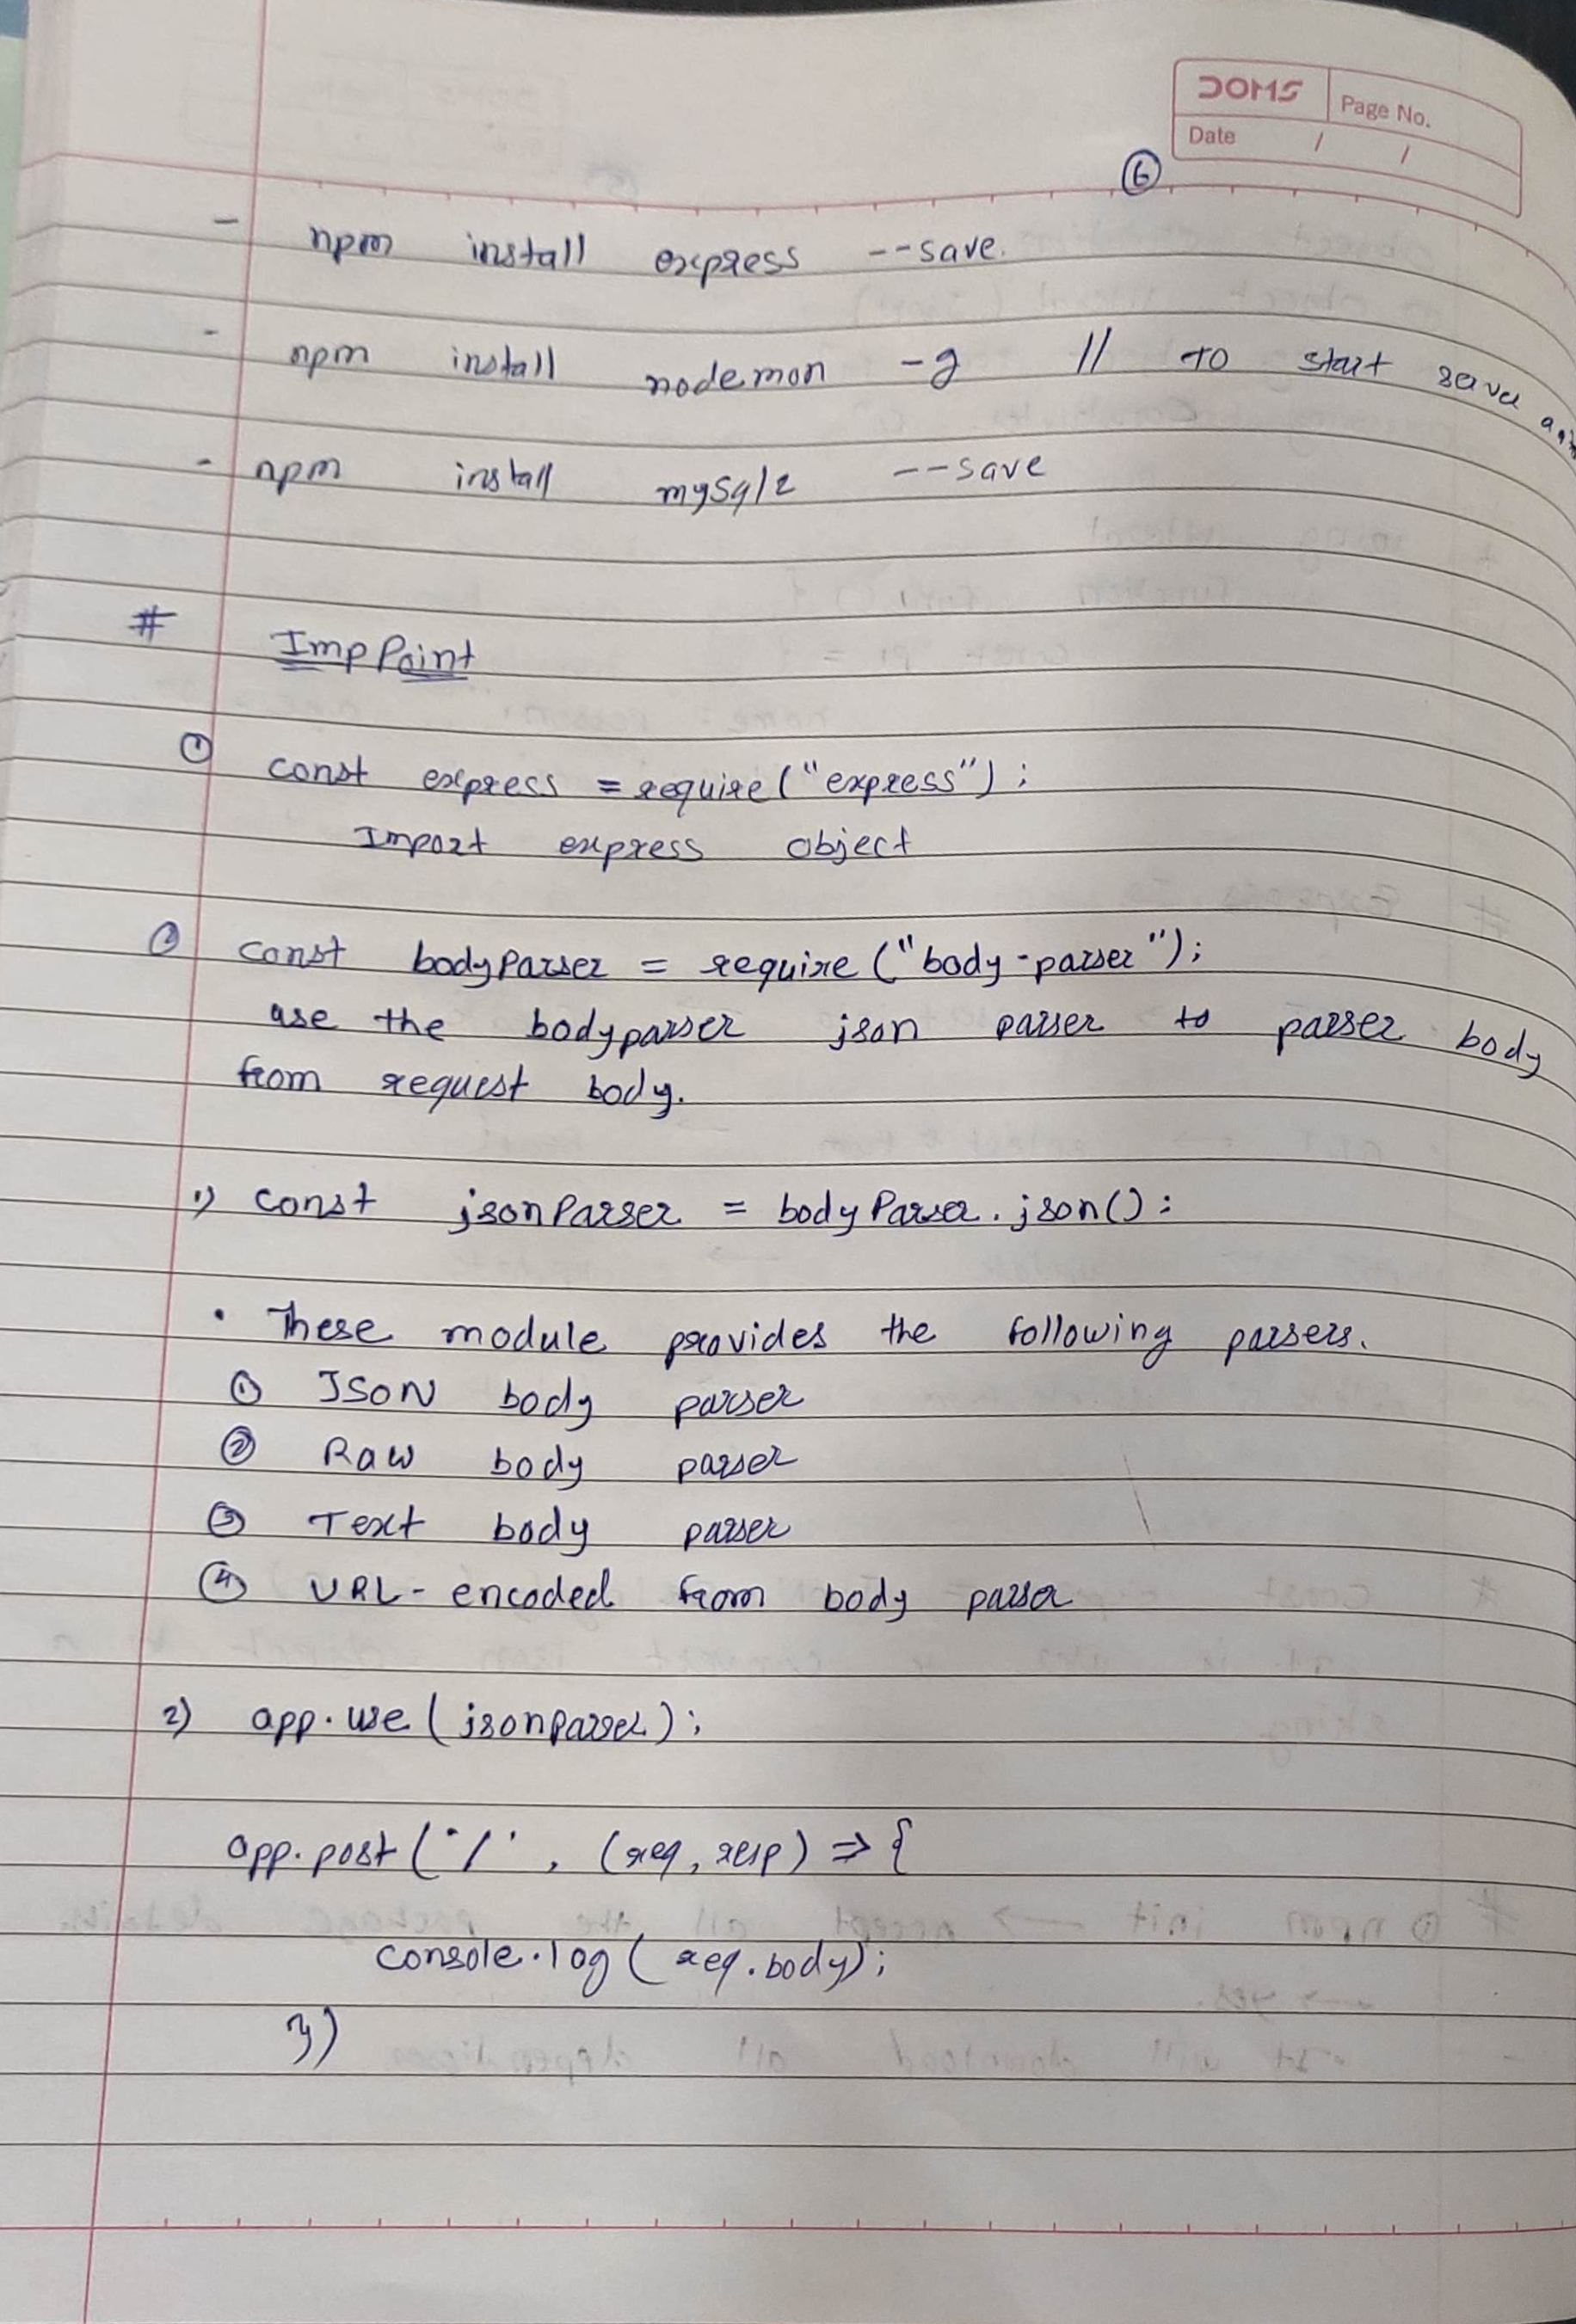 DOMS
Page No.
Date / /
6
- npm install express --save.
- npm install nodemon -g // TO start save
- npm install mysql2 --save
# Imp Point
① const express = require("express");
Import express object
② const bodyParser = require("body-parser");
use the bodyparser json parser to parser body
from request body.
1) const jsonParser = bodyParser.json():
• These module provides the following parsers.
① JSON body parser
② Raw body parser
③ Text body parser
④ URL-encoded from body parser
2) app.use(jsonparser);
app.post('/', (req, resp) => {
console.log(req.body);
})